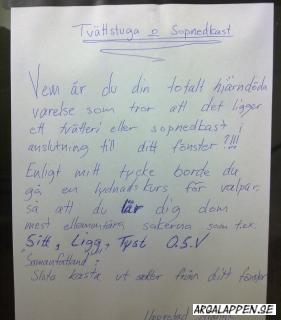 Tvättstuga o Sopnedkast
Vem är du din totalt hjärndöda
varelse som tror att det ligger
ett tvätteri eller sopnedkast i
anslutning till ditt fönster?!!!
Enligt mitt tycke borde du
gå en lydnadskurs för valpar,
så att du lär dig dom
mest ellementära sakerna som t.ex.
Sitt, Ligg, Tyst O.S.V
"Samanfattand":
Sluta kasta ut saker från ditt fönster
ARGALAPPEN.SE